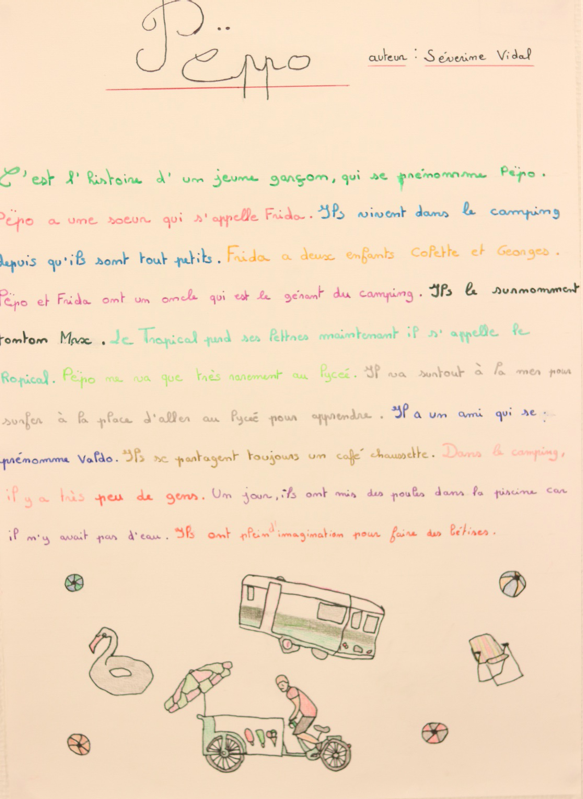 Pëppo
auteur : Séverine Vidal
C'est l'histoire d'un jeune garçon, qui se prénomme Pëpo.
Pëpo a une soeur qui s'appelle Frida. Ils vivent dans le camping
depuis qu'ils sont tout petits. Frida a deux enfants Colette et Georges.
Pëpo et Frida ont un oncle qui est le gérant du camping. Ils le surnomment
tonton Max. Le Tropical perd ses lettres maintenant il s'appelle le
Ropical. Pëpo ne va que très rarement au lycée. Il va surtout à la mer pour
surfer à la place d'aller au lycée pour apprendre. Il a un ami qui se
prénomme Valdo. Ils se partagent toujours un café chaussette. Dans le camping,
il y a très peu de gens. Un jour, ils ont mis des poules dans la piscine car
il n'y avait pas d'eau. Ils ont plein d'imagination pour faire des bêtises.